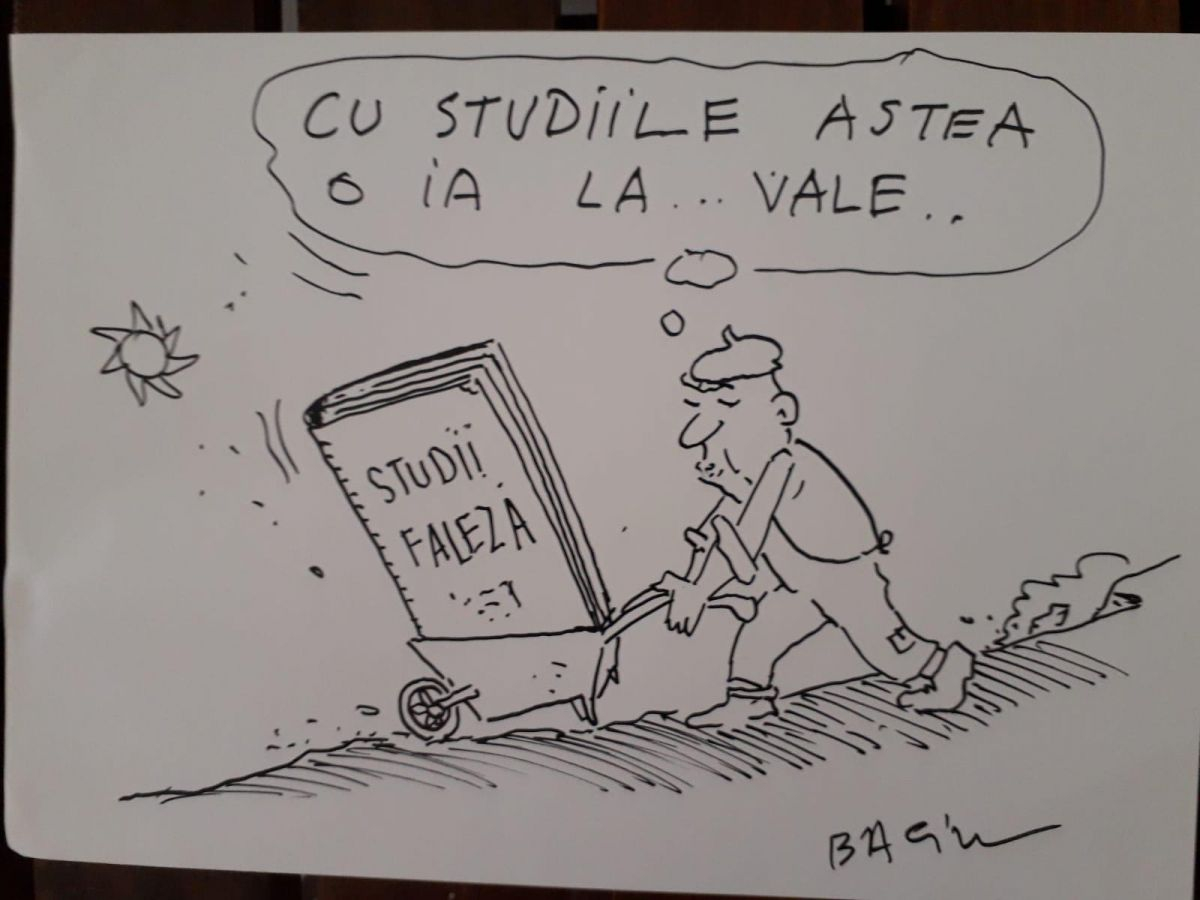 CU STUDIILE ASTEA
O IA LA... VALE..
STUDII
FALEZA